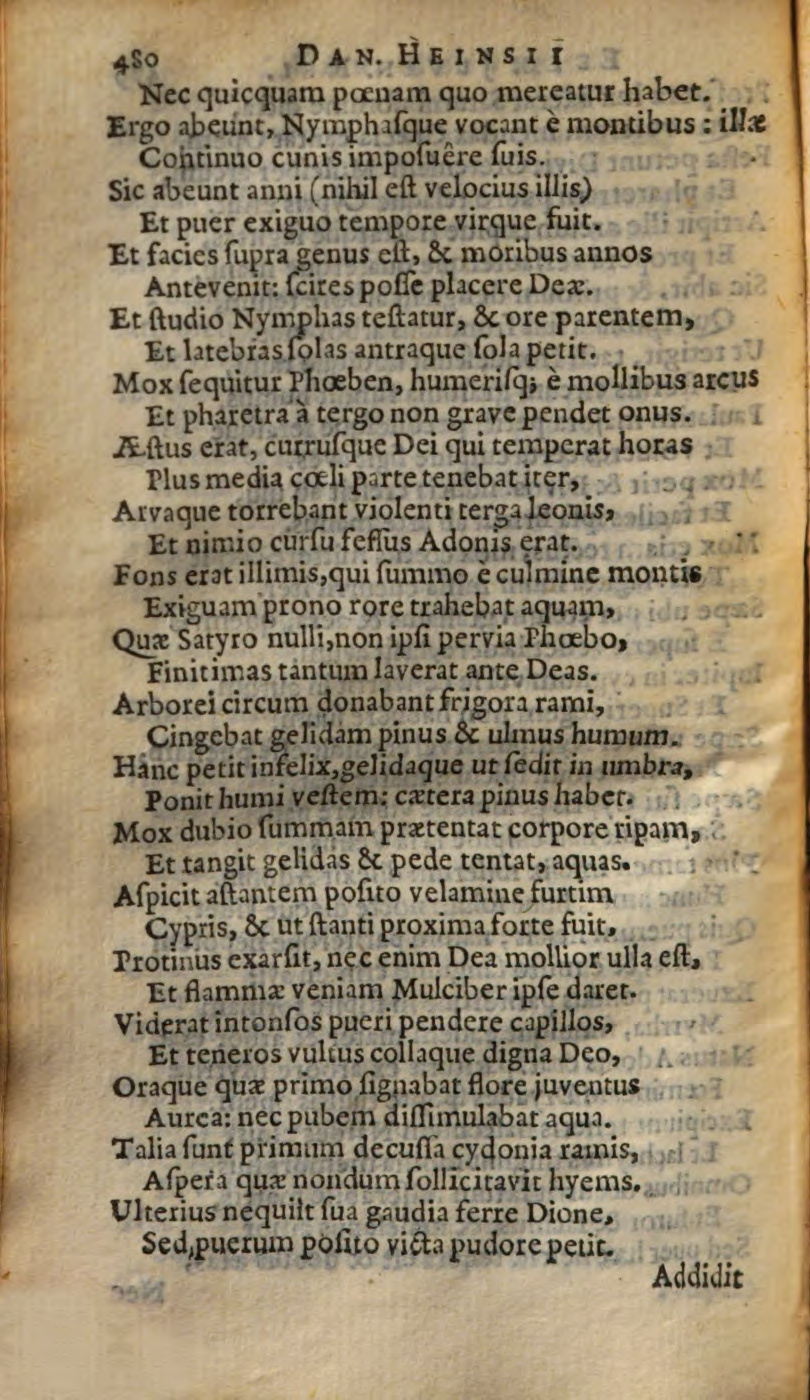 480 DAN. HEINSII
Nec quicquam pœnam quo mereatur habet.
Ergo abeunt, Nymphaſque vocant è montibus : illæ
Continuo cunis impoſuêre ſuis.
Sic abeunt anni (nihil eſt velocius illis)
Et puer exiguo tempore virque fuit.
Et facies ſupra genus eſt, & moribus annos
Antevenit: ſcires poſſe placere Deæ.
Et ſtudio Nymphas teſtatur, & ore parentem,
Et latebras ſolas antraque ſola petit.
Mox ſequitur Phœben, humeriſq; è mollibus arcus
Et pharetra à tergo non grave pendet onus.
Æſtus erat, curruſque Dei qui temperat horas
Plus media cœli parte tenebat iter,
Arvaque torrebant violenti terga leonis,
Et nimio curſu feſſus Adonis erat.
Fons erat illimis,qui ſummo è culmine montis
Exiguam prono rore trahebat aquam,
Quæ Satyro nulli,non ipſi pervia Phœbo,
Finitimas tantum laverat ante Deas.
Arborei circum donabant frigora rami,
Cingebat gelidam pinus & ulmus humum.
Hanc petit infelix,gelidaque ut ſedit in umbra,
Ponit humi veſtem: cætera pinus habet.
Mox dubio ſummam prætentat corpore ripam,
Et tangit gelidas & pede tentat, aquas.
Aſpicit aſtantem poſito velamine furtim
Cypris, & ut ſtanti proxima forte fuit,
Protinus exarſit, nec enim Dea mollior ulla eſt,
Et flammæ veniam Mulciber ipſe daret.
Viderat intonſos pueri pendere capillos,
Et teneros vultus collaque digna Deo,
Oraque quæ primo ſignabat flore juventus
Aurea: nec pubem diſſimulabat aqua.
Talia ſunt primum decuſſa cydonia ramis,
Aſpera quæ nondum ſollicitavit hyems.
Ulterius nequiit ſua gaudia ferre Dione,
Sed,puerum poſito victa pudore petit.
Addidit